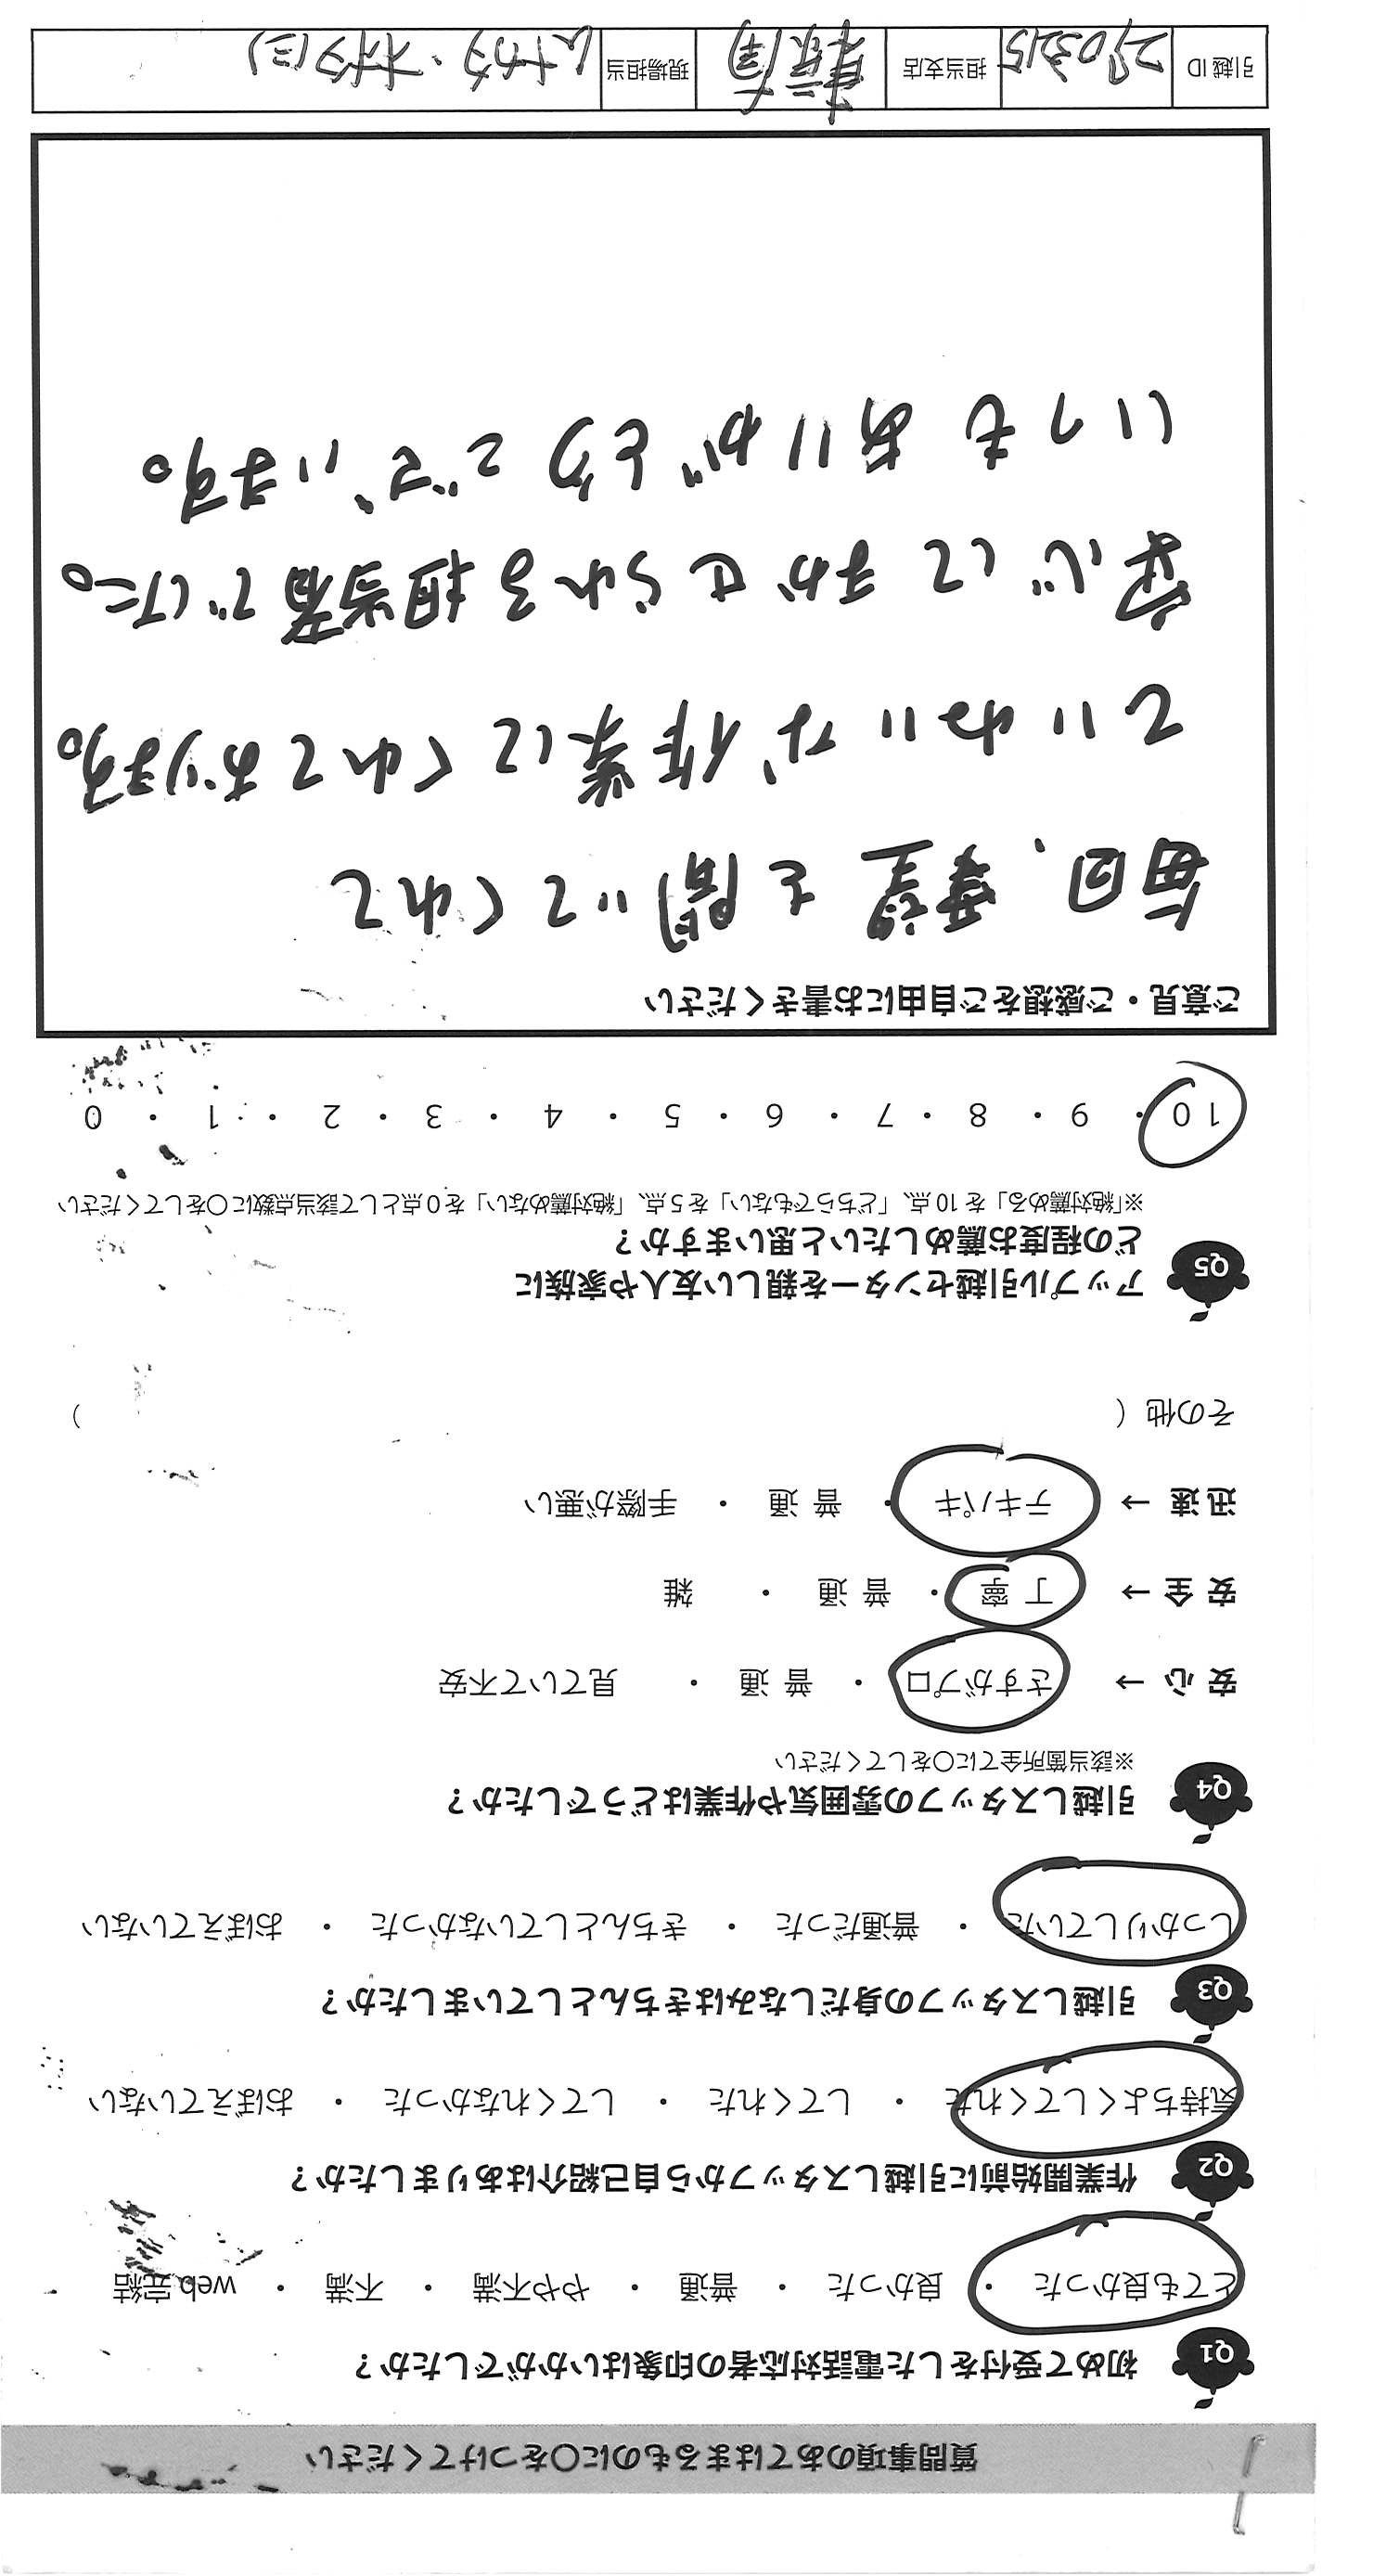 質問事項のあてはまるものに〇をつけてください
Q1 初めて受付をした電話対応者の印象はいかがでしたか？
とても良かった ・ 良かった ・ 普通 ・ やや不満 ・ 不満 ・ web完結
Q2 作業開始前に引越しスタッフから自己紹介はありましたか？
気持ちよくしてくれた ・ してくれた ・ してくれなかった ・ おぼえていない
Q3 引越しスタッフの身だしなみはきちんとしていましたか？
しっかりしていた ・ 普通だった ・ きちんとしていなかった ・ おぼえていない
Q4 引越しスタッフの雰囲気や作業はどうでしたか？
※該当箇所全てに〇をしてください
安心 → さすがプロ ・ 普通 ・ 見ていて不安
安全 → 丁寧 ・ 普通 ・ 雑
迅速 → テキパキ ・ 普通 ・ 手際が悪い
その他（ ）
Q5 アップル引越センターを親しい友人や家族に
どの程度お薦めしたいと思いますか？
※「絶対薦める」を10点、「どちらでもない」を5点、「絶対薦めない」を0点として該当点数に〇をしてください
10 ・ 9 ・ 8 ・ 7 ・ 6 ・ 5 ・ 4 ・ 3 ・ 2 ・ 1 ・ 0
ご意見・ご感想をご自由にお書きください
毎回、要望を聞いてくれて
ていねいな作業してくれております。
安心してまかせられる担当者でした。
いつもありがとうございます。
引越ID 担当支店 東京南 現場担当